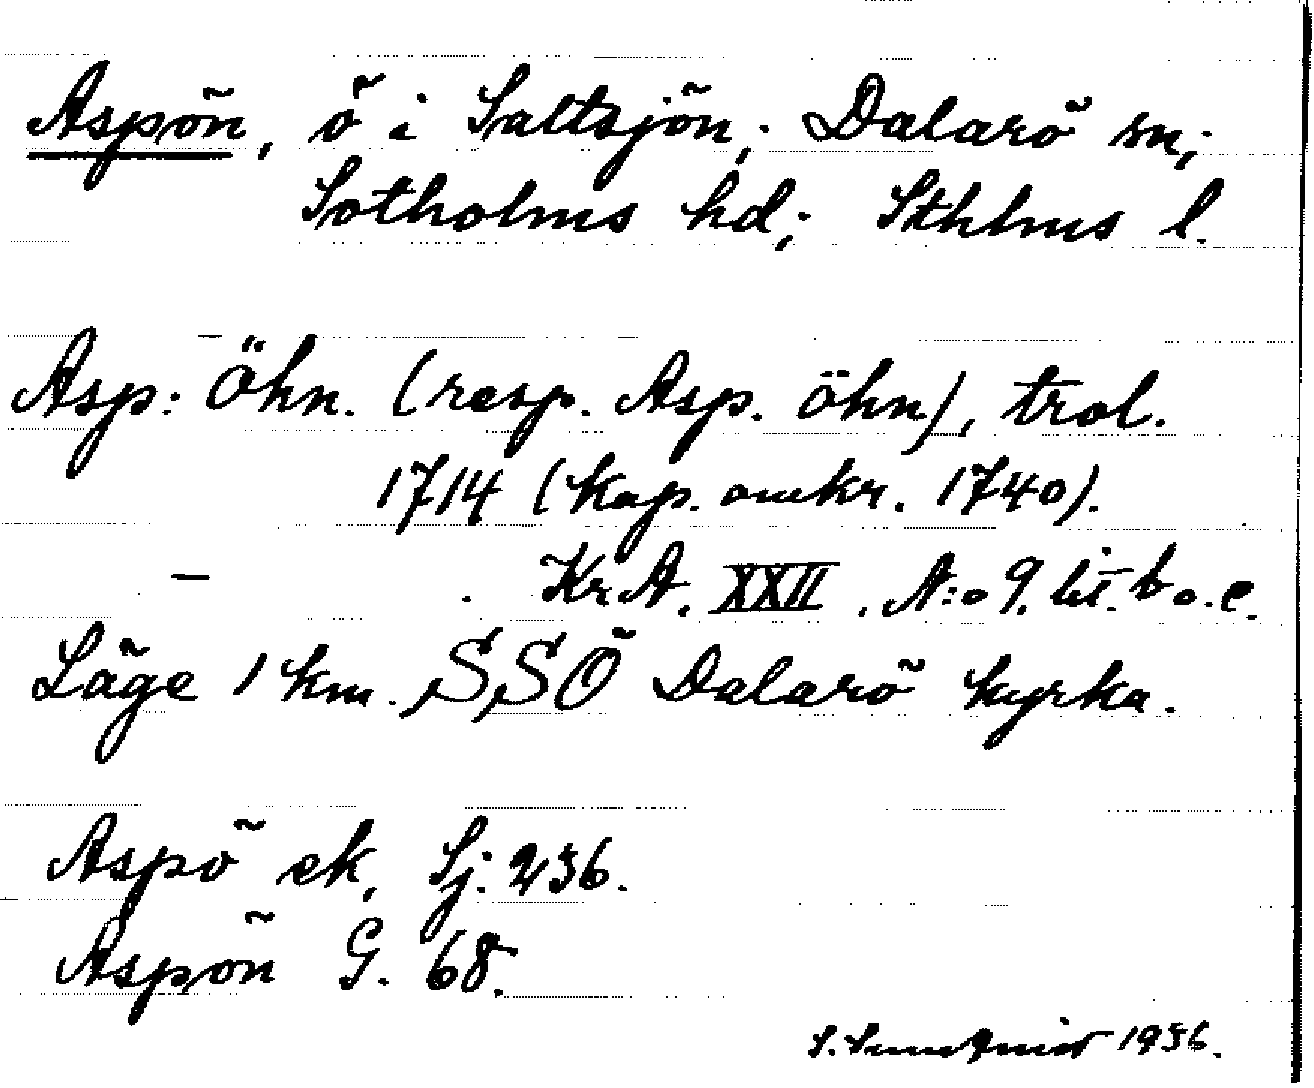 Aspön, ö i Saltsjön; Dalarö sn;
Sotholms hd; Sthlms l.
Asp: Öhn. (resp. Asp. öhn), trol.
1714 (kop. omkr. 1740).
— Kr.A. XXII. N:o 9. lit. b o. c.
Läge 1 km. SSÖ Dalarö kyrka.
Aspö ek. Sj. 236.
Aspön G. 68.
S. 1936.